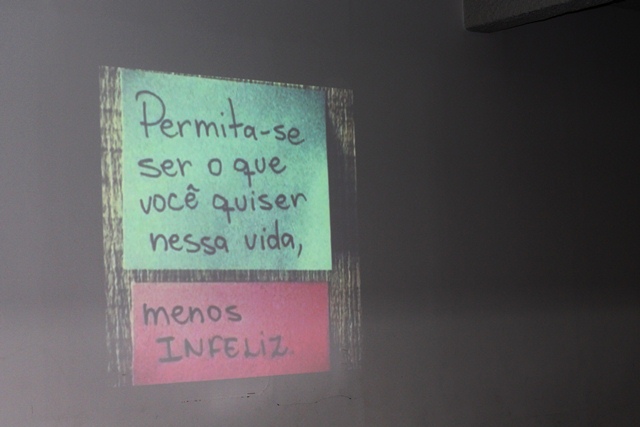 Permita-se
ser o que
você quiser
nessa vida,
menos
INFELIZ.